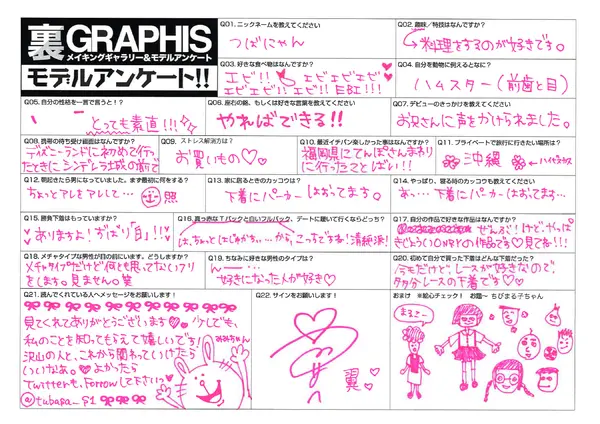 裏GRAPHIS
メイキングギャラリー&モデルアンケート
モデルアンケート!!
Q01. ニックネームを教えてください
つばにゃん
Q02. 趣味/特技はなんですか?
料理をするのが好きです。
Q03. 好きな食べ物はなんですか?
エビ!! エビエビエビ
エビエビ!! エビ!! EBI!!!
Q04. 自分を動物に例えるとなに?
ハムスター(前歯と目)
Q05. 自分の性格を一言で言うと!?
とっても素直!!!
Q06. 座右の銘、もしくは好きな言葉を教えください
やればできる!!
Q07. デビューのきっかけを教えてください
お兄さんに声をかけられました。
Q08. 携帯の待ち受け画面はなんですか?
ディズニーランドに初めて行っ
たときにシンデレラ城の前で
Q09. ストレス解消方は?
お買いもの♡
Q10. 最近イチバン楽しかった事はなんですか?
福岡県にてんぽさんまおり
に行ったことばい!!
Q11. プライベートで旅行に行きたい場所は?
沖縄
Q12. 朝起きたら男になっていました。まず最初に何をする?
ちょっとアレをアレして… 照
Q13. 家に居るときのカッコウは?
下着にパーカーはおってます。
Q14. やっぱり、寝る時のカッコウも教えてください
あっ…下着にパーカーはおってます…
Q15. 勝負下着はもっていますか?
ありますよ!やっぱり「白」!!
Q16. 真っ赤なTバックと白いフルバック、デートに履いて行くならどっち?
は、ちょっとはじめかな…から、こっちですね!清純派!
Q17. 自分の作品で好きな作品はなんですか?
ぜんぶ!けど、やっぱ
きどういONLYの作品です♡見てね!!!
Q18. メチャタイプな男性が目の前にいます。どうしますか?
メチャタイプだけど何とも思ってないフリ
をします。見ません。笑
Q19. ちなみに好きな男性のタイプは?
ん――…
好きになった人が好き♡
Q20. 初めて自分で買った下着はどんな下着だった?
今もだけど、レースが好きなので、
多分レースの下着です♡
Q21. 読んでくれている人へメッセージをお願いします!
見てくれてありがとうございます♡少しでも、
私のことを知ってもらえて嬉しいです!
沢山の人と、これから関わっていけたら
いいなぁ。♡よかったら
Twitterも、Forrowして下さいっ
@tubasa_91
Q22. サインをお願いします!
翼♡
おまけ ※絵心チェック! お題~ちびまる子ちゃん
まるこー